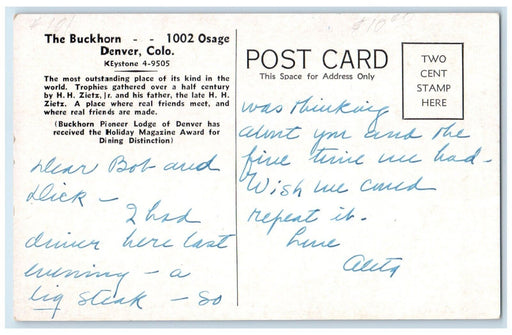 The Buckhorn - - 1002 Osage
Denver, Colo.
KEystone 4-9505
The most outstanding place of its kind in the
world. Trophies gathered over a half century
by H. H. Zietz, Jr. and his father, the late H. H.
Zietz. A place where real friends meet, and
where real friends are made.
(Buckhorn Pioneer Lodge of Denver has
received the Holiday Magazine Award for
Dining Distinction)
Dear Bob and
Dick -
I had
dinner here last
evening - a
big steak - So
POST CARD
This Space for Address Only
TWO
CENT
STAMP
HERE
was thinking
about you and the
fine time we had -
Wish we could
repeat it.
Love
Aleta